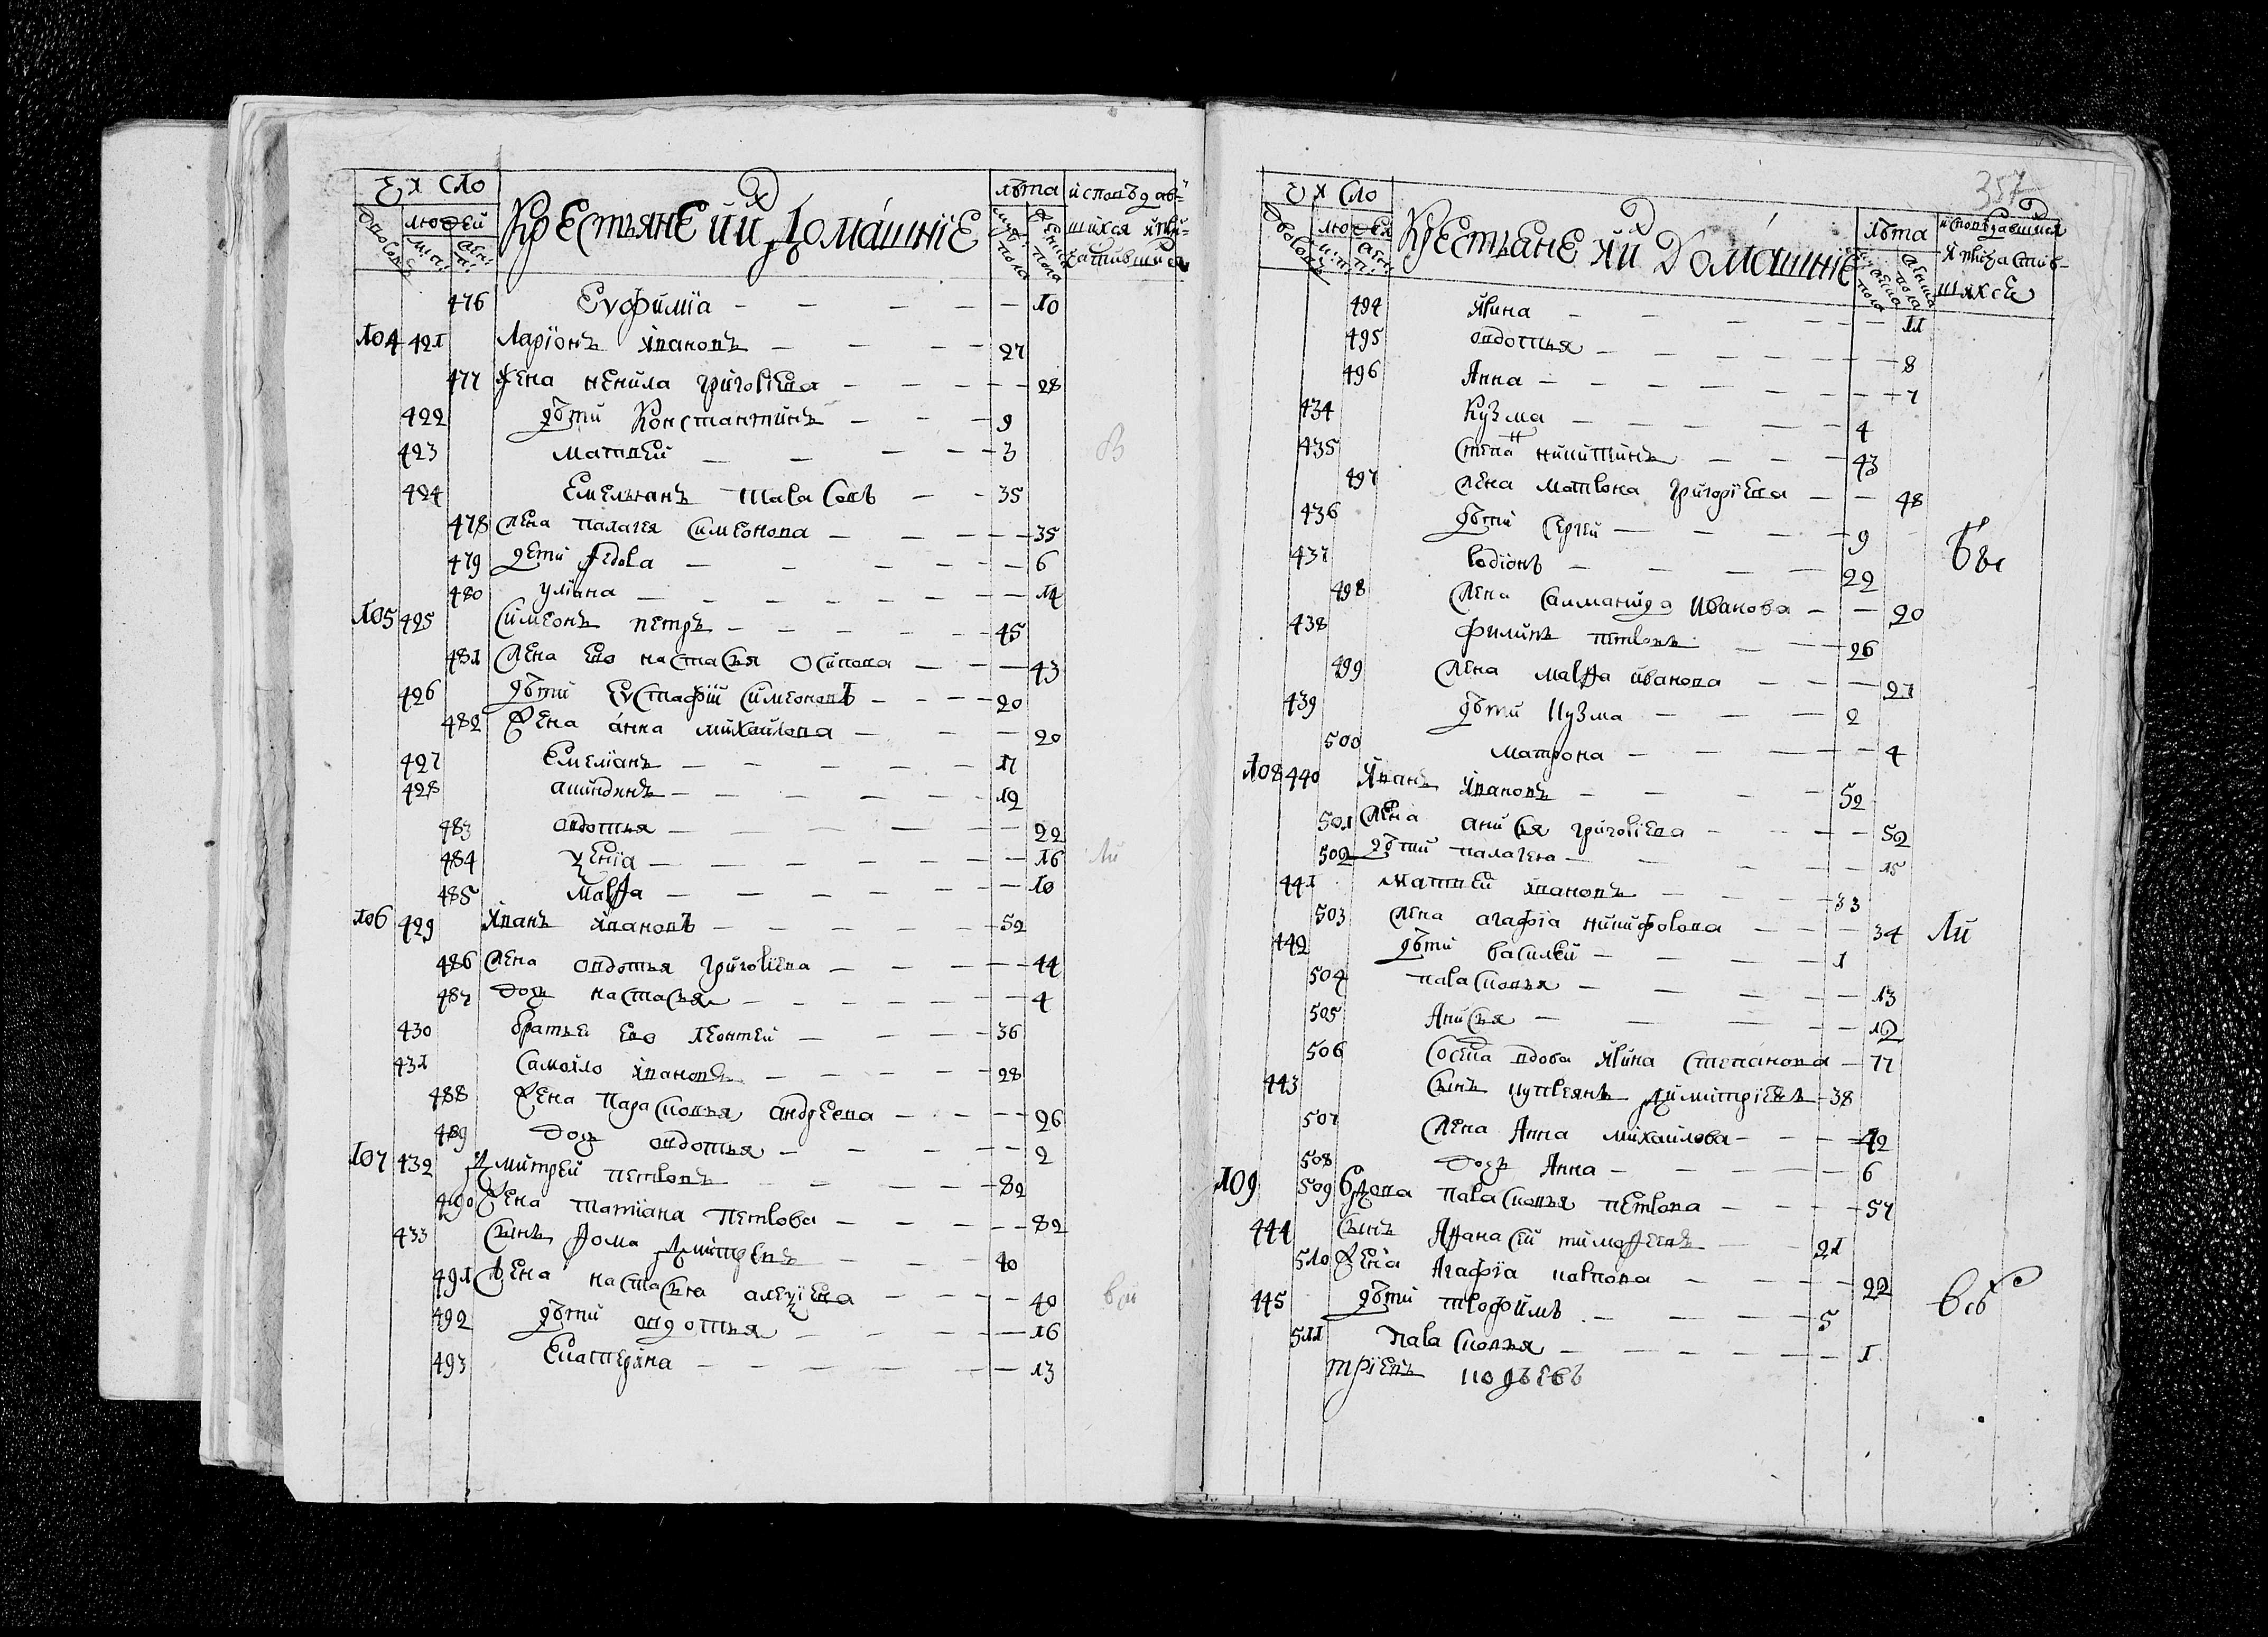 Число
Крестьяне и их домашніе
лѣта
исповѣдав-
людей
шихся и при-
Дворовъ
муж. п.
жен. п.
муж. пола
женск. пола
частившихся
476 Еуфимїа 10
104 421 Ларїонъ Ивановъ 27
477 Жена Ненила Григорїева 28
422 дѣти Константинъ 9
423 Матвей 3
В
424 Емельянъ Тарасовъ 35
478 Жена Палагея Симеонова 35
479 дети Ѳедора 6
480 Улїана 14
105 425 Симеонъ Петръ 45
481 Жена ево Настасья Осипова 43
426 дѣти Еустафїй Симеоновъ 20
482 Жена Анна Михайлова 20
427 Емелїанъ 17
428 Акиндинъ 12
483 Овдотья 22
484 Ѯенїа 16
Ли
485 Марѳа 10
106 429 Иванъ Ивановъ 52
486 Жена Овдотья Григорїева 44
487 дочь Настасья 4
430 братьи ево Леонтей 36
431 Самойло Ивановъ 28
488 Жена Парасковья Андреева 26
489 дочь Овдотья 2
107 432 Дмитрей Петровъ 82
490 Жена Татїана Петрова 82
433 сынъ Ѳома Дмитревъ 40
491 Жена Настасья Алеѯїева 40
492 дѣти Овдотья 16
493 Екатерина 13
357
Число
Крестьяне и их Домашніе
лѣта
исповѣдавшихся
людей
и причастив-
Дворовъ
муж. п.
женск. п.
шихся
494 Ирина 11
495 Овдотья 8
496 Анна 7
434 Кузма 4
435 Степанъ Никитинъ 43
497 Жена Матрона Григорїева 48
436 дѣти Сергей 9
437 Родїонъ 22
498 Жена Саламанида Иванова 20
438 Филипъ Петровъ 26
499 Жена Марѳа Иванова 27
439 дѣти Кузма 2
500 Матрона 4
108 440 Иванъ Ивановъ 52
501 Жена Анисья Григорїева 52
502 дѣти Палагея 15
441 Матвей Ивановъ 33
503 Жена Агафїа Никифорова 34
Ли
442 дѣти Василей 1
504 Парасковья 13
505 Анисья 12
506 вдова Ирина Степанова 77
443 сынъ Купреянъ Димитрїевъ 38
507 Жена Анна Михайлова 42
508 дочь Анна 6
109 509 Вдова Парасковья Петрова 57
444 сынъ Аѳанасїй Тимоѳеевъ 21
510 Жена Агафїа Карпова 22
445 дѣти Трофимъ 5
511 Парасковья 1
трїевъ